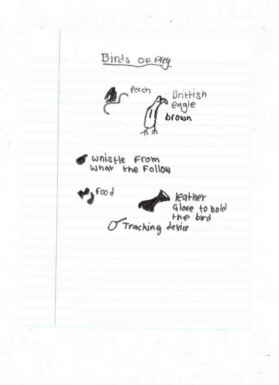 Birds of Prey
Perch
Brittish
eagle
brown
whistle from
what the follow
food
leather
Glove to hold
the bird
Tracking device